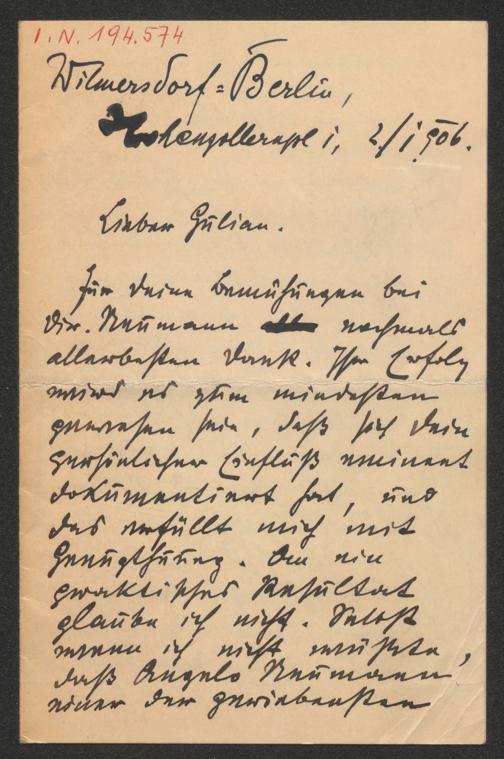 I. N. 194.574
Wilmersdorf=Berlin,
Hohenzollernpl 1, 2/I 906.
Lieber Gulian.
Für Deine Bemühungen bei
Dir. Neumann nochmals
allerbesten Dank. Ihr Erfolg
wird es zum mindesten
gewesen sein, daß sich Dein
persönlicher Einfluß eminent
dokumentiert hat, und
das erfüllt mich mit
Genugthuung. An ein
praktisches Resultat
glaube ich nicht. Selbst
wenn ich nicht wüßte,
daß Angelo Neumann
einer der geriebensten